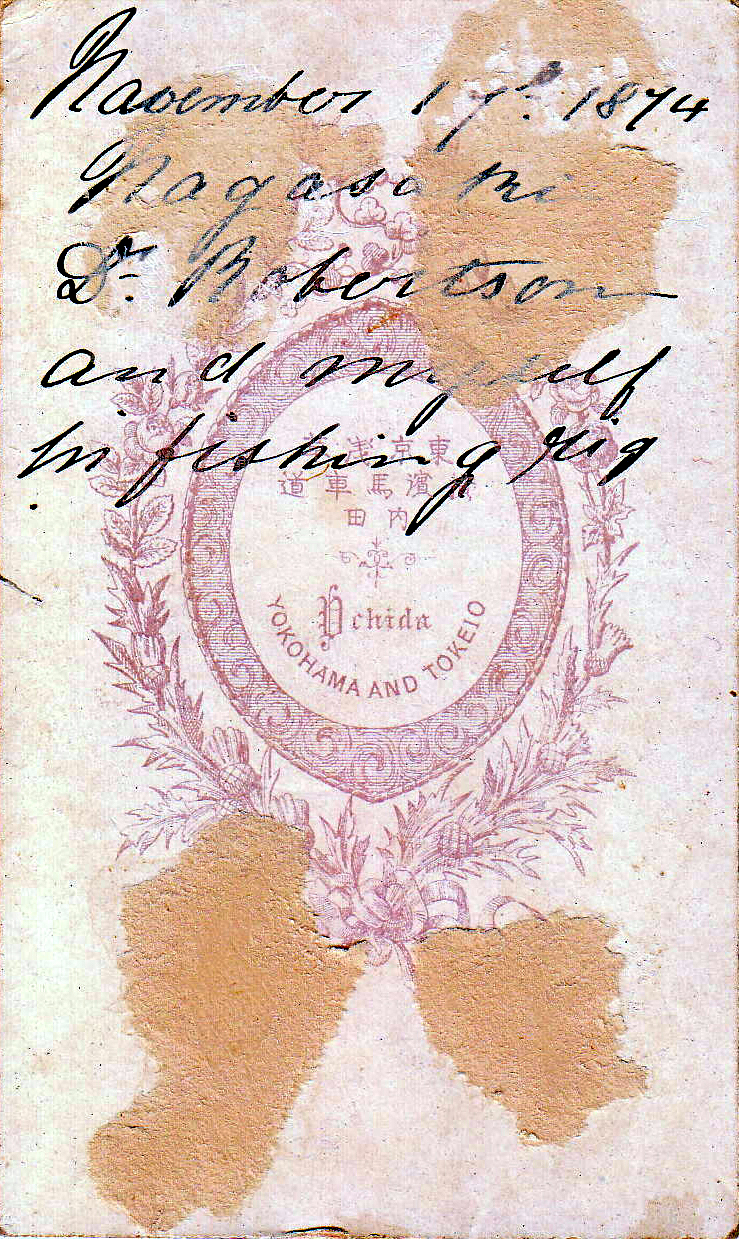 November 17th 1874
Nagasaki
Dr. Robertson
and myself
in fishing rig
東京淺
濱馬車道
内田
Uchida
YOKOHAMA AND TOKEIO